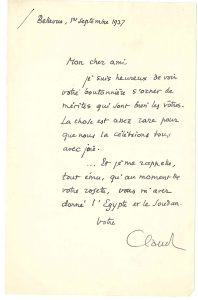 1er septembre 1937
Mon cher ami,
je suis heureux de voir
votre boutonnière s'orner de
mérites qui sont bien les vôtres.
La chose est assez rare pour
que nous la célébrions tous
avec joie.
... Et je me rappelle,
tout ému, qu'au moment de
votre rosette, vous m'avez
donné l'Egypte et le Soudan.
Votre